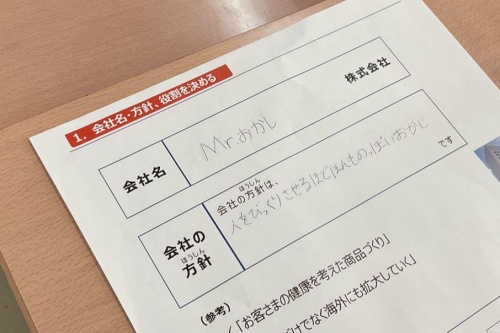 1. 会社名・方針、役割を決める
会社名
Mr.おかし
株式会社
会社の
ほうしん
方針
ほうしん
会社の方針は、
人をびっくりさせるほどほんものっぽいおかし
です
(参考)
「お客さまの健康を考えた商品づくり」
だけでなく海外にも拡大していく」